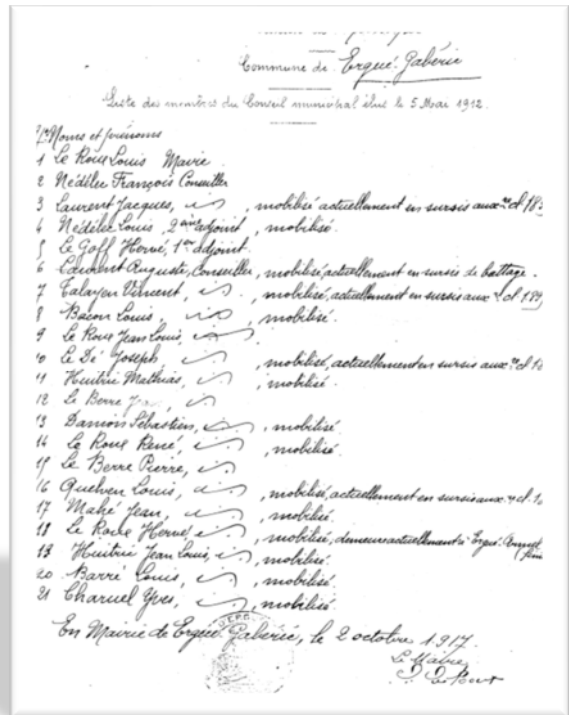 Commune de Ergué-Gabéric
Liste des membres du Conseil municipal élus le 5 Mai 1912.
Noms et prénoms
1 Le Roux Louis Maire
2 Nédélec François Conseiller
3 Laurent Jacques, id , mobilisé actuellement en sursis
4 Nédélec Louis, 2ème adjoint, mobilisé.
5 Le Goff Hervé, 1er adjoint.
6 Laurent Auguste, Conseiller, mobilisé, actuellement en sursis de battage.
7 Talayen Vincent, id , mobilisé, actuellement en sursis
8 Bacon Louis, id mobilisé.
9 Le Roux Jean Louis, id
10 Le Dé Joseph id , mobilisé, actuellement en sursis
11 Huitric Mathias, id , mobilisé.
12 Le Berre id
13 Danion Sébastien, id , mobilisé.
14 Le Roux René, id , mobilisé.
15 Le Berre Pierre, id
16 Quelven Louis, id , mobilisé, actuellement en sursis
17 Mahé Jean, id , mobilisé.
18 Le Roux Hervé, id , mobilisé, demeure actuellement à Ergué-Armel
19 Huitric Jean Louis, id , mobilisé.
20 Barré Louis, id , mobilisé.
21 Charuel Yves, id , mobilisé.
En Mairie de Ergué-Gabéric, le 2 octobre 1917.
Le Maire